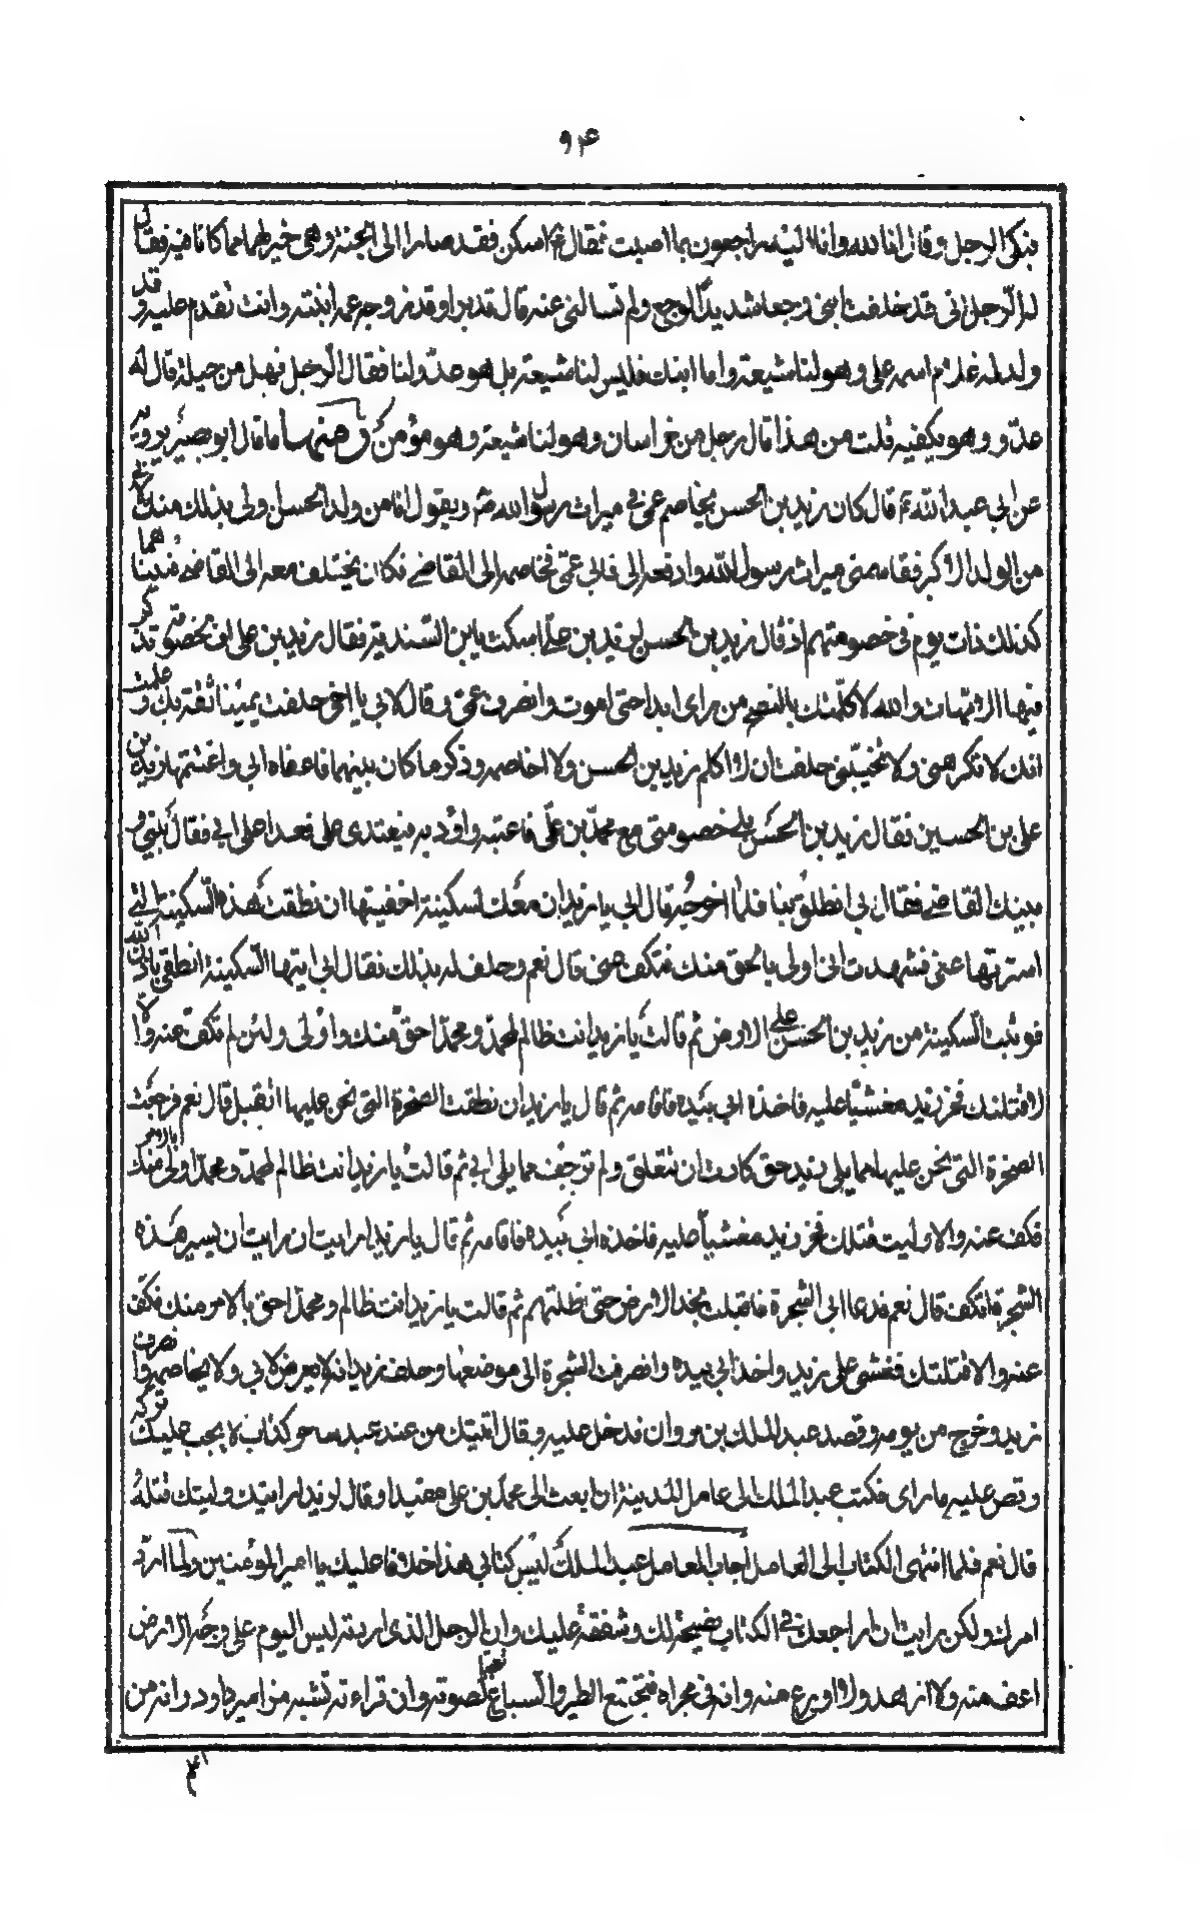 ۹۴
فبكى الرجل وقال انا لله وانا اليه راجعون بما اصبت فقال ع اسكن فقد صارا الى الجنة وهى خير لهما مما كانا فيه فقال
له الرجل انى قد خلفت ابنى وجعا شديد الوجع ولم تسالنى عنه قال قد برا وقد زوجه عمه ابنته وانت تقدم عليه وقد
ولد له غلام اسمه على وهو لنا شيعة واما ابنك فليس لنا شيعة بل هو عدو لنا فقال الرجل فهل من حيلة قال له
عدو وهو يكفيه قلت من هذا قال رجل من خراسان وهو لنا شيعة وهو مؤمن ومنها ما قال ابو بصير يرويه
عن ابى عبد الله ع قال كان زيد بن الحسن يخاصم عمى فى ميراث رسول الله ص ويقول انا من ولد الحسن اولى بذلك منك لانى
من الولد الاكبر فقاسمنى ميراث رسول الله وادفعه الى فابى عمى فخاصمه الى القاضى فكان يختلف معه الى القاضى فبينا هما
كذلك ذات يوم فى خصومتهم اذ قال زيد بن الحسن لزيد بن على اسكت يابن السندية فقال زيد بن على اف لخصومة تذكر
فيها الامهات والله لا كلمتك بالفصيح من راى ابدا حتى اموت وانصرف عمى وقال لابى يا اخى حلفت يمينا ثقة بك وعلمت
انك لا تكرهنى ولا تخيبنى حلفت ان لا اكلم زيد بن الحسن ولا اخاصمه وذكر ما كان بينهما فاعفاه ابى واغتنمها زيد بن
على بن الحسين فقال زيد بن الحسن يلى خصومتى مع محمد بن على فاعتبه واؤذيه فيعتدى على فعدا على ابى فقال بينى و
بينك القاضى فقال ابى انطلق بنا فلما اخرجه قال ابى يا زيد ان معك لسكينة اخفيتها ان نطقت هذه السكينة التى
استرتها عنى فشهدت انى اولى بالحق منك فتكف عنى قال نعم وحلف له بذلك فقال ابى ايتها السكينة انطقى باذن الله
فوثبت السكينة من زيد بن الحسن على الارض ثم قالت يا زيد انت ظالم لمحمد ومحمد احق منك واولى ولئن لم تكف عنه والا
لاقتلنك فخر زيد مغشيا عليه فاخذه ابى بيده فاقامه ثم قال يا زيد ان نطقت الصخرة التى نحن عليها اتقبل قال نعم فرجفت
الصخرة التى نحن عليها مما يلى زيد حتى كادت ان تتعلق ولم ترجف مما يلى ابى ثم قالت يا زيد انت ظالم لمحمد ومحمد اولى بالامر منك
فكف عنه والا وليت قتلك فخر زيد مغشيا عليه فاخذه ابى بيده فاقامه ثم قال يا زيد ارايت ان رايت ان يسير هذه
الشجرة اتكف قال نعم فدعا ابى الشجرة فاقبلت تخد الارض حتى ظلتهم ثم قالت يا زيد انت ظالم ومحمد احق بالامر منك فكف
عنه والا قتلتك فغشى على زيد واخذ ابى بيده وانصرفت الشجرة الى موضعها وحلف زيد انه لا يعرض لابى ولا يخاصمه وانصرف
زيد وخرج من يومه وقصد عبد الملك بن مروان فدخل عليه وقال اتيتك من عند عبد ساحر كذاب لا يجب عليك تركه
وقص عليه ما راى فكتب عبد الملك الى عامل المدينة ان ابعث الى محمد بن على مقيدا وقال لزيد ارايتك وليتك قتله
قال نعم فلما انتهى الكتاب الى العامل اجاب العامل عبد الملك ليس كتابى هذا خلافا عليك يا امير المؤمنين ولما ارد
امرك ولكن رايت ان اراجعك فى الكتاب نصيحة لك وشفقة عليك وان الرجل الذى اردته ليس اليوم على وجه الارض
اعف منه ولا ازهد ولا اورع منه وانه فى محراه فتجتمع الطير والسباع تعجبا لصوته وان قراءته تشبه مزامير داود وانه من